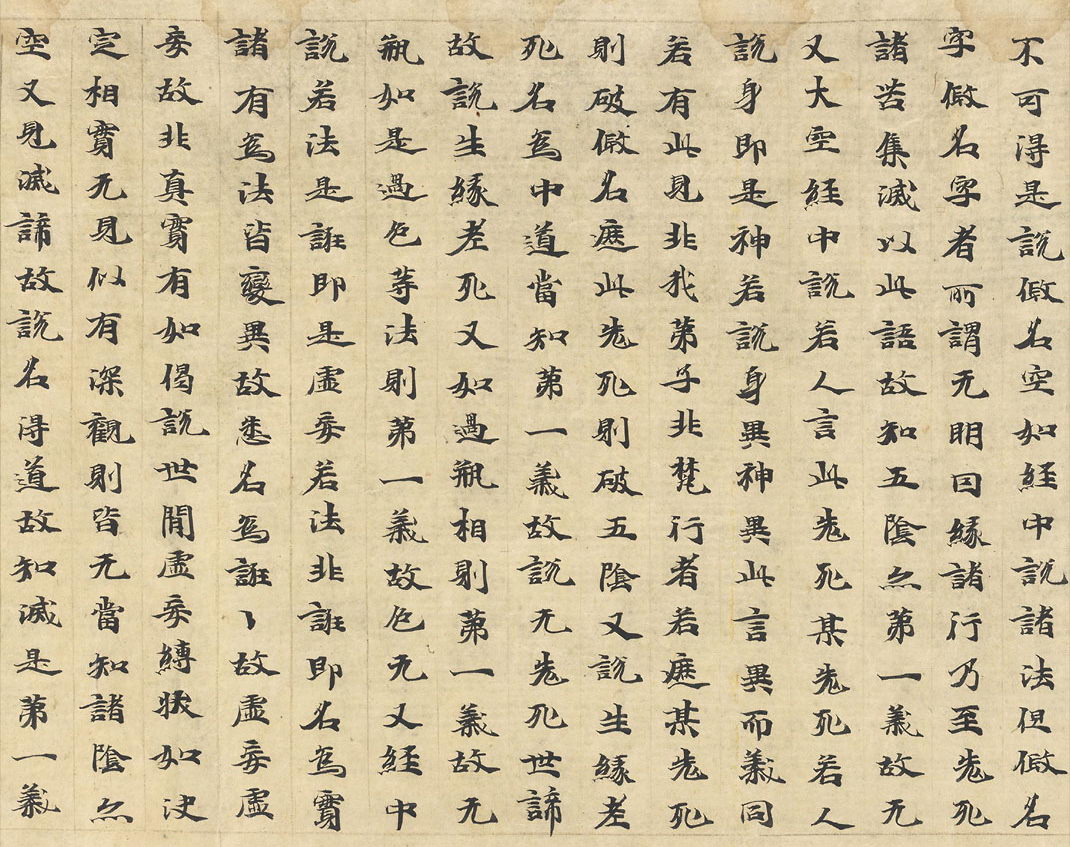 不可得是說假名空如経中說諸法但假名
字假名字者所謂无明因縁諸行乃至老死
諸苦集滅以此語故知五陰亦第一義故无
又大空経中說若人言此老死某老死若人
說身即是神若說身異神異此言異而義同
若有此見非我弟子非梵行者若遮某老死
則破假名遮此老死則破五陰又說生縁老
死名為中道當知第一義故說无老死世諦
故說生縁老死又如過瓶相則第一義故无
瓶如是過色等法則第一義故色无又経中
說若法是誑即是虛妄若法非誑即名為實
諸有為法皆變異故悉名為誑丶故虛妄虛
妄故非真實有如偈說世閒虛妄縛状如决
定相實无見似有深觀則皆无當知諸陰亦
空又見滅諦故說名得道故知滅是第一義